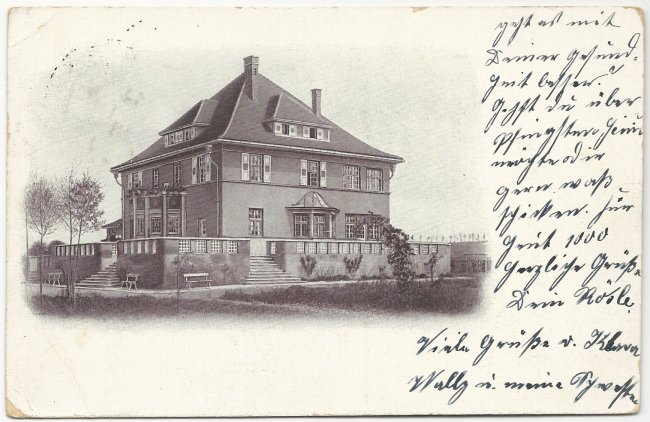 geht es mit
Deiner Gesund-
heit besser?
Gehst du über
Pfingsten heim
möchte dir
gern waß
schicken. Für
heut 1000
herzliche Grüße
Dein Rösle.
Viele Grüße v. Klara
Wally u. meine Schweste